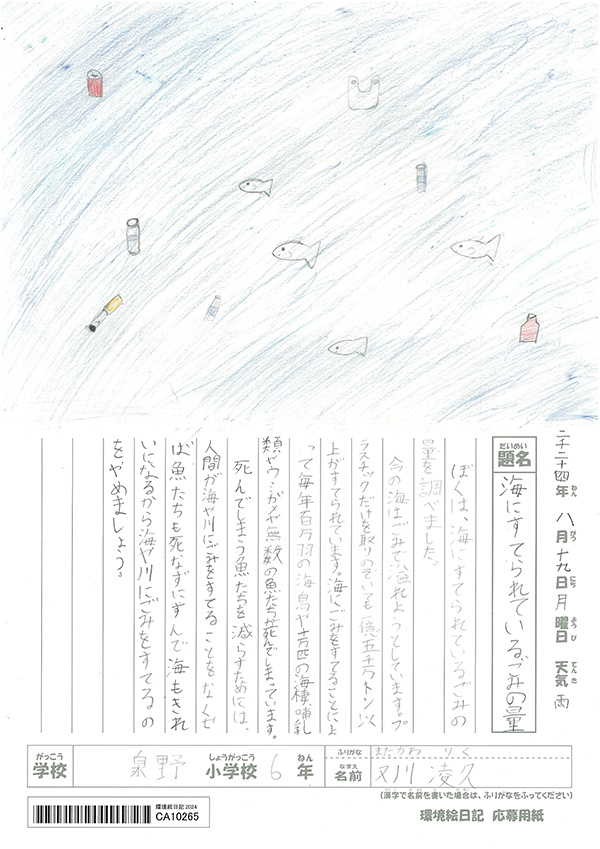 二千二十四年 八月 十九日 月曜日 天気 雨
ねん がつ にち ようび てんき
だいめい
題名 海にすてられているごみの量
ぼくは、海にすてられているごみの
量を調べました。
今の海はごみで溢れようとしています。プ
ラスチックだけを取りのぞいても一億五千万トン以
上がすてられています。海にごみをすてることによ
って毎年百万羽の海鳥や十万匹の海棲哺乳
類やウミガメや無数の魚たちが死んでしまっています。
死んでしまう魚たちを減らすためには、
人間が海や川にごみをすてることをなくせ
ば魚たちも死なずにすんで海もきれ
いになるから海や川にごみをすてるの
をやめましょう。
がっこう しょうがっこう ねん
学校 泉野 小学校 6 年
ふりがな またがわ りく
なまえ
名前 又川 凌久
(漢字で名前を書いた場合は、ふりがなをふってください)
環境絵日記2024
CA10265
環境絵日記 応募用紙